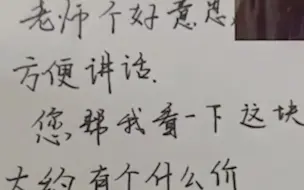 老师个好意思
方便讲话.
您帮我看一下这块
大约有个什么价